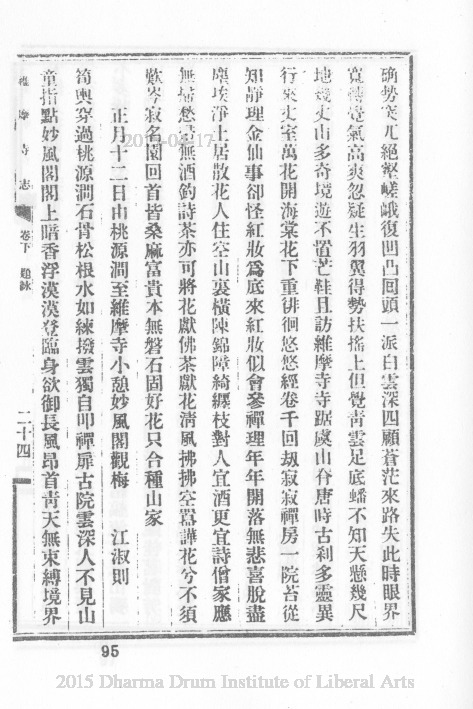 确勢突兀絕壑嵯峨復凹凸回頭一派白雲深四顧蒼茫來路失此時眼界
寬轉覺氣高爽忽疑生羽翼得勢扶搖上但覺靑雲足底蟠不知天懸幾尺
地幾丈山多奇境遊不置芒鞋且訪維摩寺寺踞虞山脊唐時古刹多靈異
行來丈室萬花開海棠花下重徘徊悠悠經卷千回刼寂寂禪房一院苔從
知靜理金仙事卻怪紅妝爲底來紅妝似會參禪理年年開落無悲喜脫盡
塵埃淨土居散花人住空山裏橫陳錦障綺纙枝對人宜酒更宜詩僧家應
無掃愁帚無酒鈎詩茶亦可將花獻佛茶獻花淸風拂拂空囂譁花兮不須
歎岑寂名園回首皆桑麻富貴本無磐石固好花只合種山家
正月十二日由桃源澗至維摩寺小憩妙風閣觀梅 江淑則
筍輿穿過桃源澗石骨松根水如練撥雲獨自叩禪扉古院雲深人不見山
童指點妙風閣閣上暗香浮漠漠登臨身欲御長風昂首靑天無束縛境界
維摩寺志
卷下 題詠
二十四
95
2015 Dharma Drum Institute of Liberal Arts